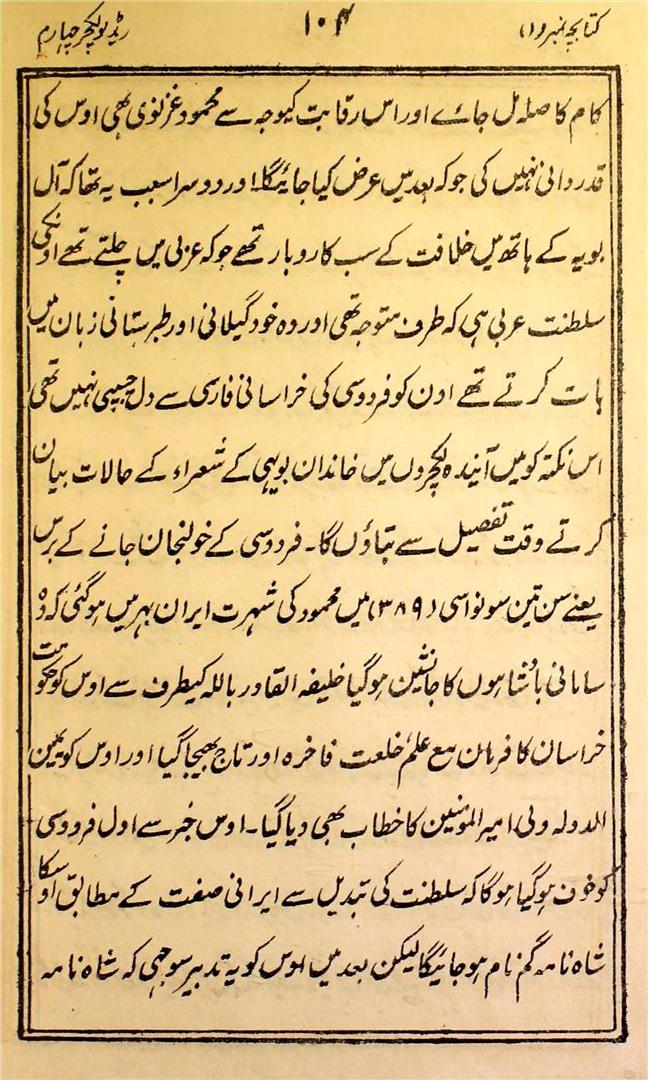 کتابچہ نمبر (۱)
۱۰۴
ریڈیو لکچر چہارم
کام کا صلہ مل جائے اور اس رقابت کیوجہ سے محمود غزنوی بھی اوس کی
قدردانی نہیں کی جو کہ بعد میں عرض کیا جائیگا۔ اور دوسرا سبب یہ تھا کہ آل
بویہ کے ہاتھ میں خلافت کے سب کاروبار تھے جو کہ عربی میں چلتے تھے اونکی
سلطنت عربی ہی کہ طرف متوجہ تھی اور وہ خود گیلانی اور طبرستانی زبان میں
بات کرتے تھے اون کو فردوسی کی خراسانی فارسی سے دل چسپی نہیں تھی
اس نکتہ کو میں آیندہ لکچروں میں خاندان بویہی کے شعراء کے حالات بیان
کرتے وقت تفصیل سے بتاؤں گا۔ فردوسی کے خولنجان جانے کے برس
یعنے سن تین سو نواسی (۳۸۹) میں محمود کی شہرت ایران بہر میں ہو گئی کہ وہ
سامانی بادشاہوں کا جانشین ہو گیا خلیفہ القادر باللہ کیطرف سے اوس کو حکومت
خراسان کا فرمان مع علم خلعت فاخرہ اور تاج بھیجا گیا اور اوس کو یمین
الدولہ ولی امیر المومنین کا خطاب بھی دیا گیا۔ اوس خبر سے اول فردوسی
کو خوف ہو گیا ہو گا کہ سلطنت کی تبدیل سے ایرانی صفت کے مطابق اوسکا
شاہ نامہ گم نام ہو جائیگا لیکن بعد میں اوس کو یہ تدبیر سوجہی کہ شاہ نامہ